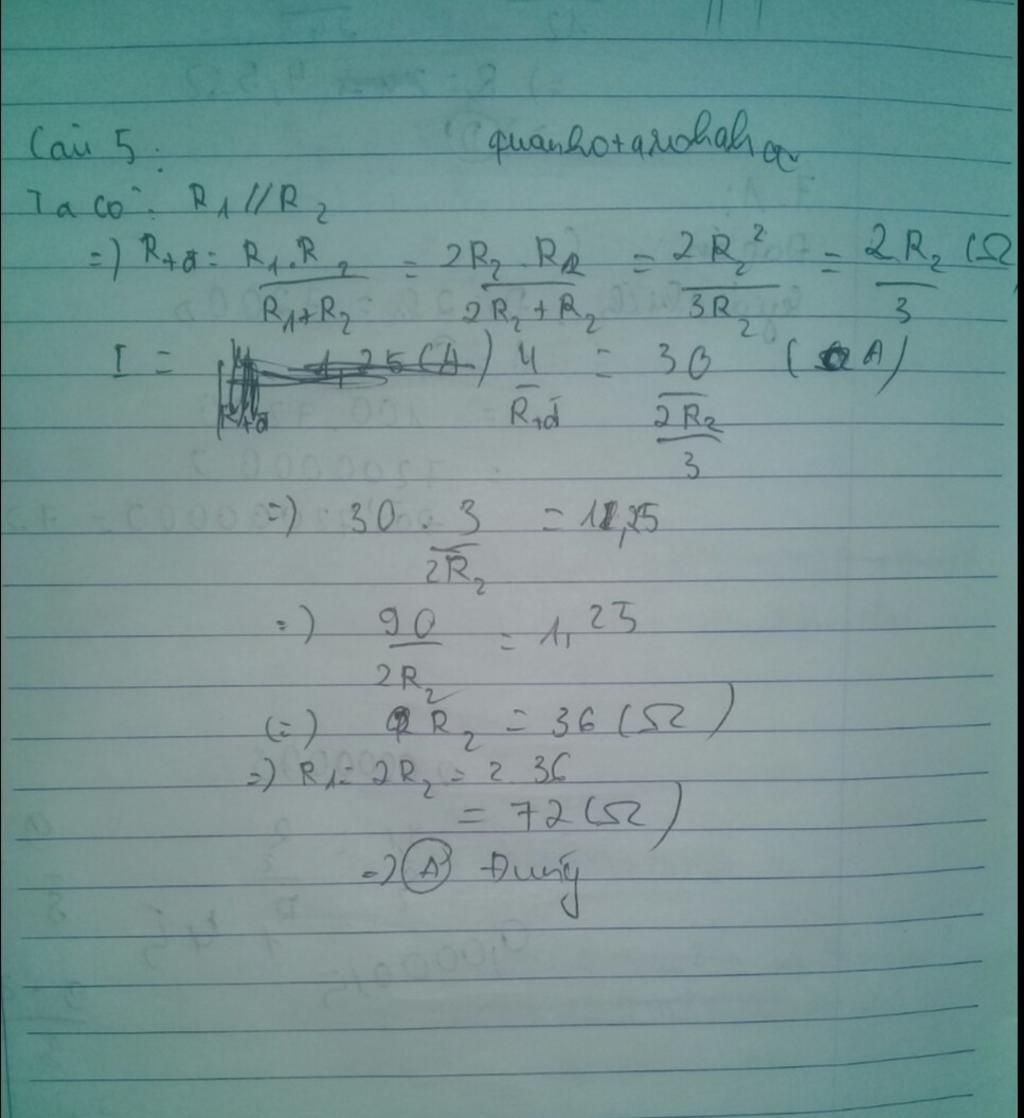 Câu 5:
quanho+anohahaa
Ta có: R1 // R2
=) R+đ = R1.R2/R1+R2 = 2R2.R2/2R2+R2 = 2R2²/3R2 = 2R2/3 (Ω
I = U/R+đ = 30/2R2/3 (A)
=) 30.3/2R2 = 1,25
=) 90/2R2 = 1,25
(=) R2 = 36 (Ω)
=) R1 = 2R2 = 2.36
= 72 (Ω)
=) A Đúng